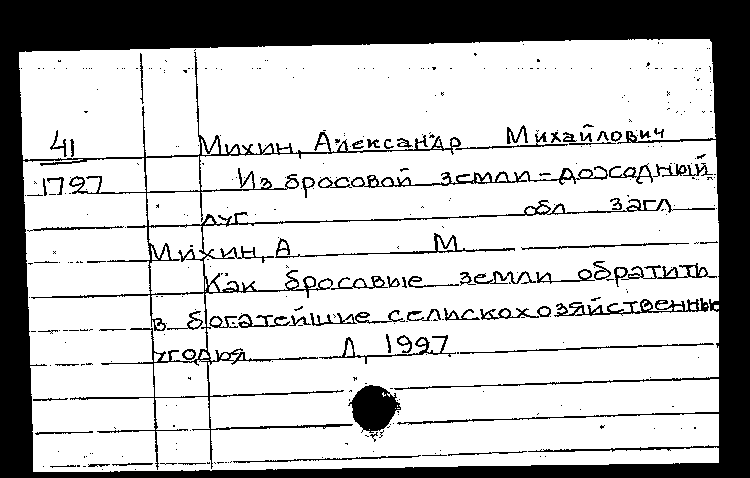 41 Михин, Александр Михайлович
1797 Из бросовой земли - доходный
луг. обл. загл
Михин, А. М.
Как бросовые земли обратить
в богатейшие селискохозяйственные
угодья Л., 1997